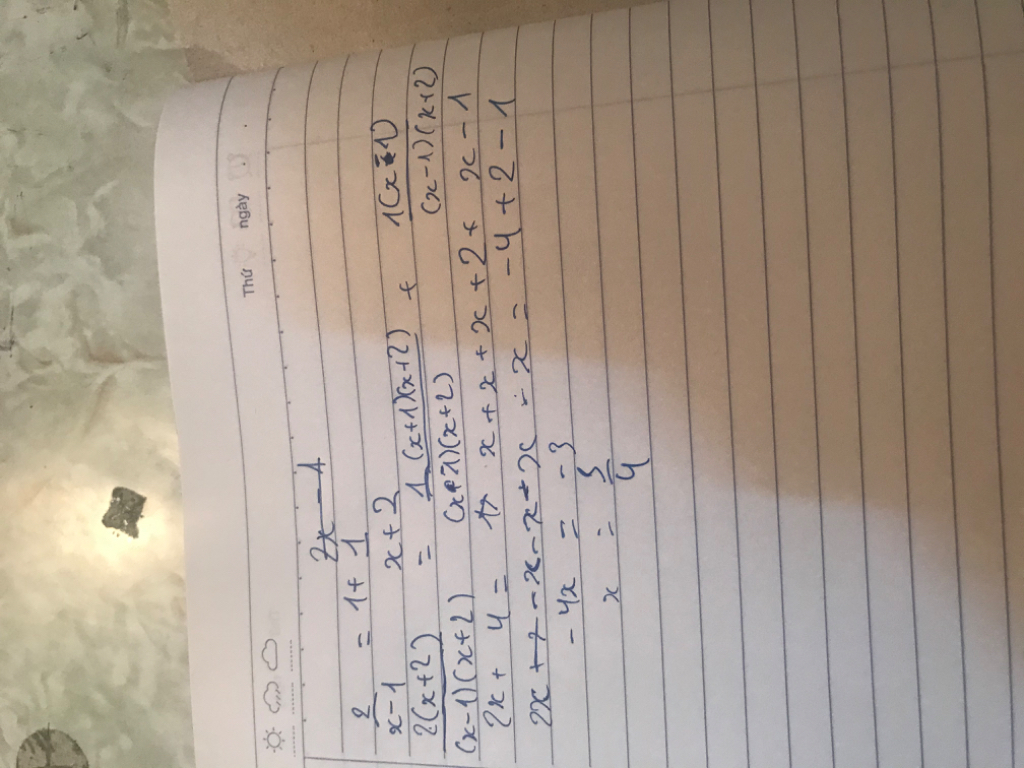 Thứ ngày
2x - 1
2/(x-1) = 1 + 1/(x+2)
2(x+2)/((x-1)(x+2)) = 1(x+1)(x+2)/((x-1)(x+2)) + 1(x-1)/((x-1)(x+2))
2x + 4 = x + x + x + 2 + x - 1
2x + - x - x + x - x = -4 + 2 - 1
-4x = -3
x = 3/4